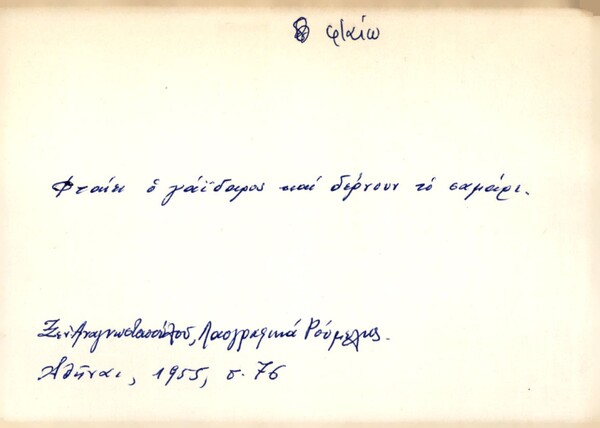 φταίω
Φταίει ὁ γάϊδαρος καί δέρνουν τό σαμάρι.
Ξεν. Ἀναγνωστοπούλου, Λαογραφικά Ρούμελης.
Ἀθῆναι, 1955, σ. 76